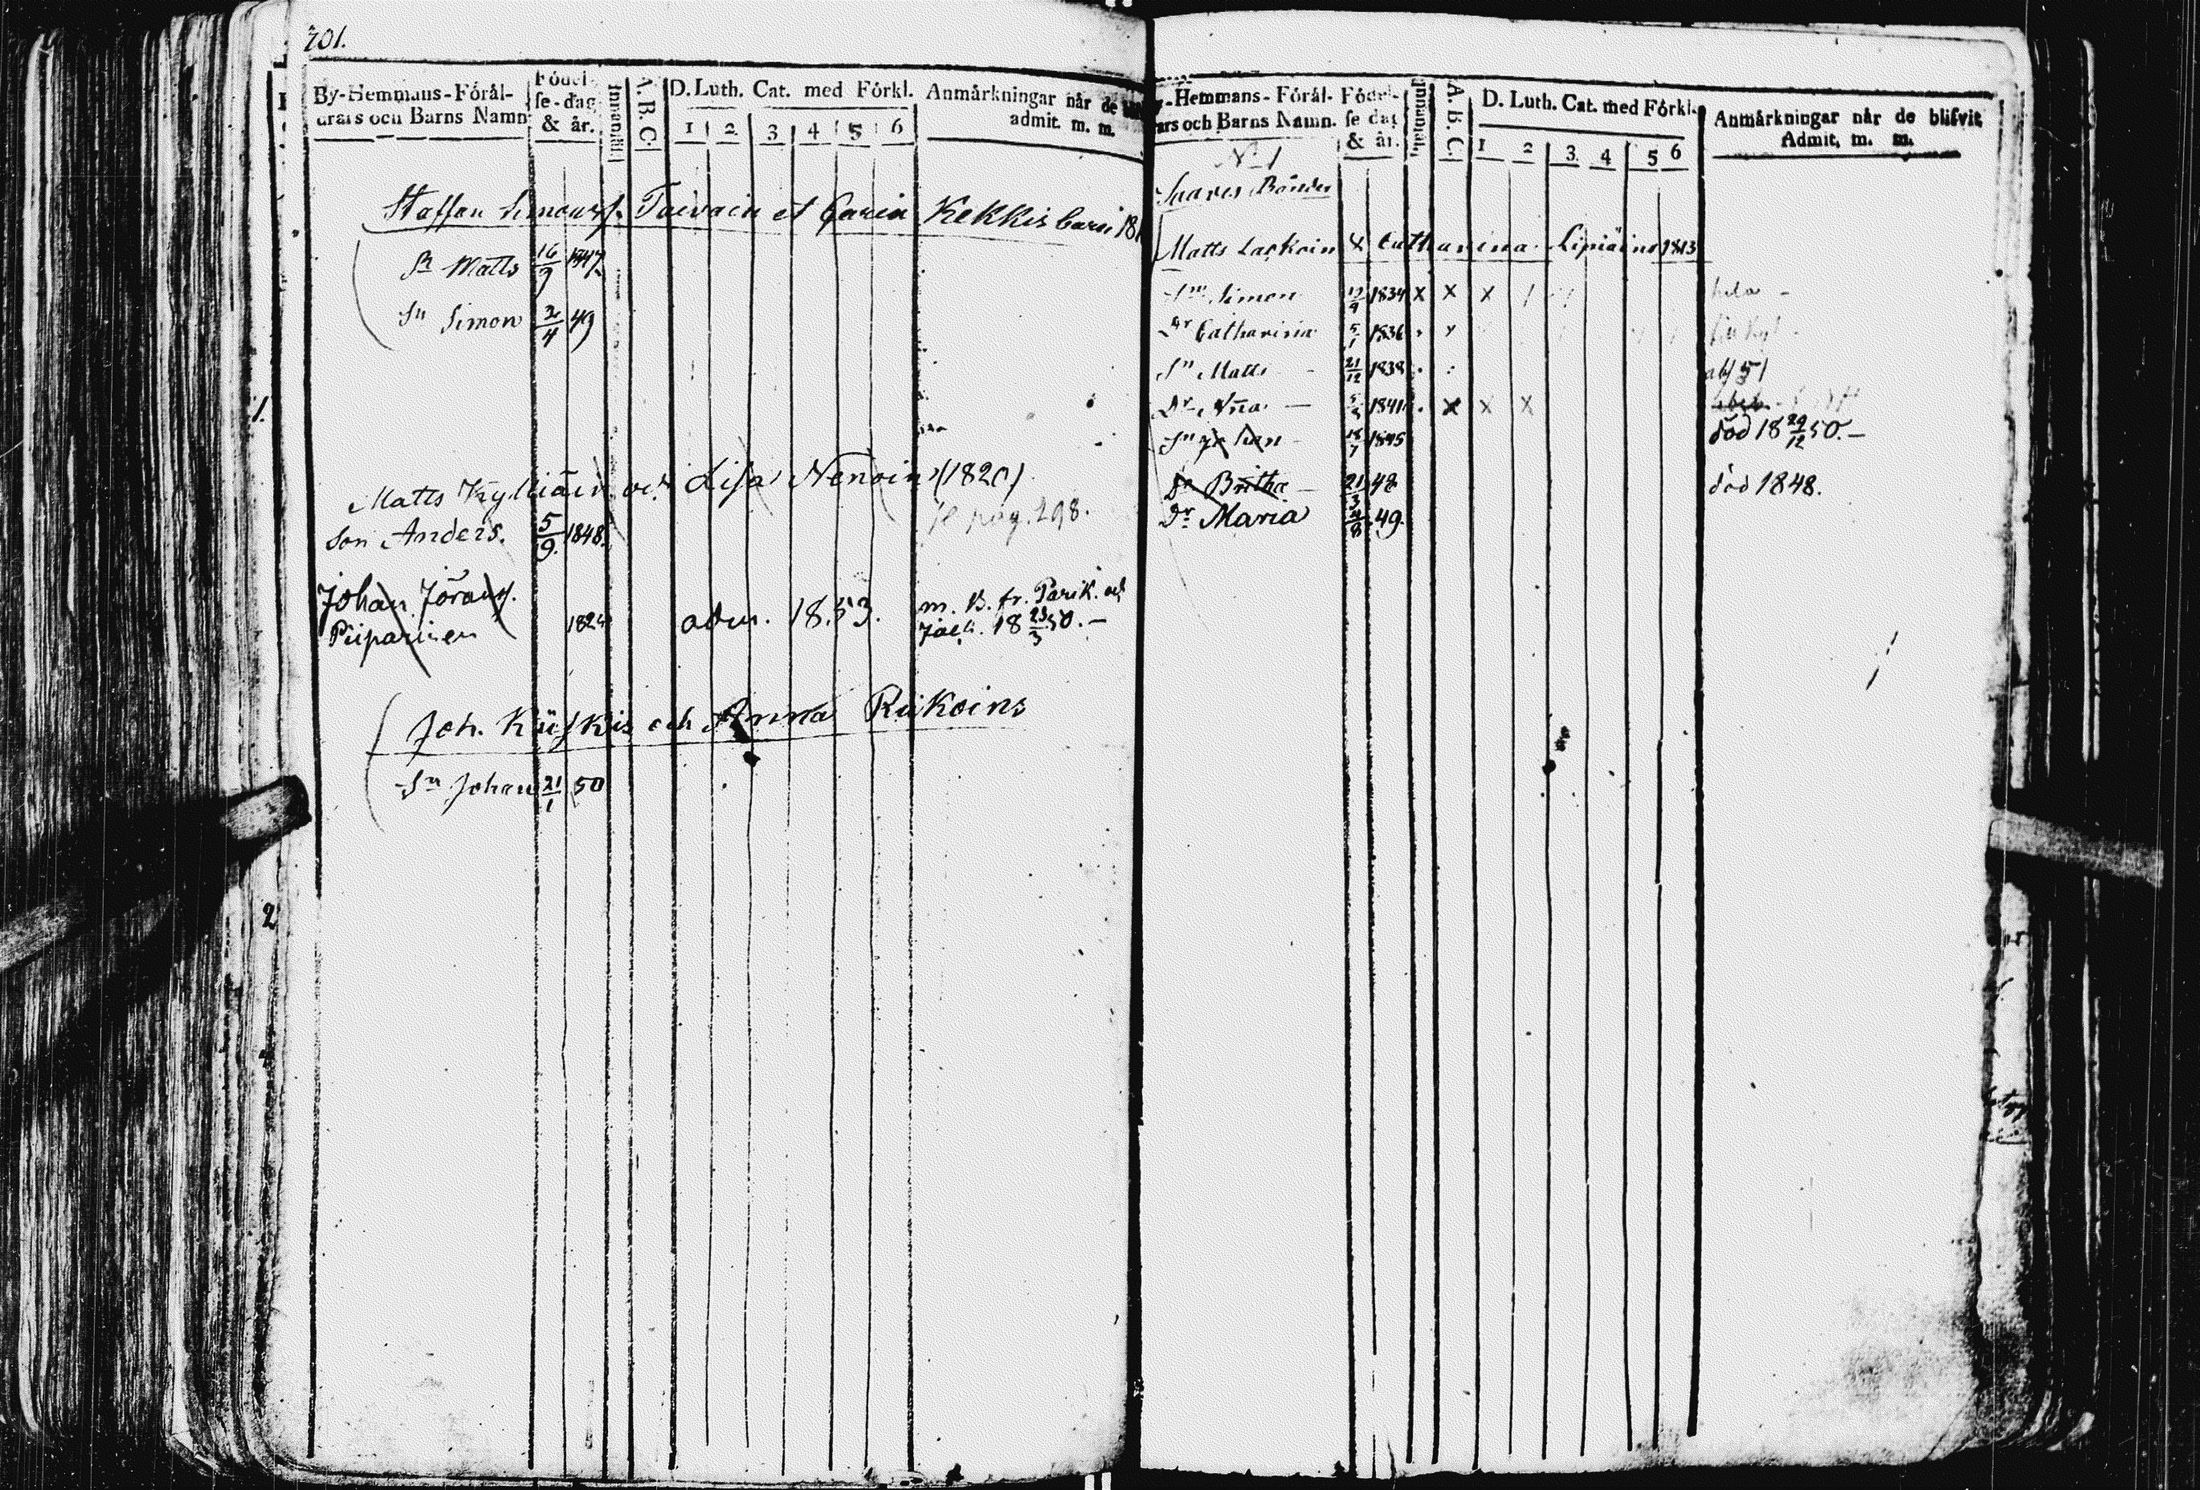 201.
By-Hemmans-Föräl-
drars och Barns Namn
Födel-
se-dag
& år.
A. B. C.
D. Luth. Cat. med Förkl.
1 2 3 4 5 6
Anmärkningar när de
admit. m. m.
Staffan Simonss. Toivain et Carin Kekkis barn 18
Sn Matts 16/9 1847
Sn Simon 2/4 49
Matts Kylliäin och Lisa Nenoin (1820)
pag. 298.
Son Anders. 5/9. 1848.
Johan Jörans.
Piiparinen 1824 adm. 1853.
m. B. fr. Parik. och
Jaak. 18 23/3 50. –
Joh. Käyhkis och Anna Riikoins
Sn Johan 21/1 50
-Hemmans-Föräl-
ars och Barns Namn.
Födel-
se dag
& år.
A. B. C.
D. Luth. Cat. med Förkl.
1 2 3 4 5 6
Anmärkningar när de blifvit
Admit. m. m.
No 1
Bönder
Matts Laskain & Catharina Lipiäine 1813
Sn Simon 12/9 1834 x x x
Dr Catharina 5/1 1836
Sn Matts 21/12 1838
Dr Anna 1841 x x x
Sn Johan 18/7 1845 död 18 29/12 50. –
Dr Britha 21/3 48 död 1848.
Dr Maria 4/8 49.